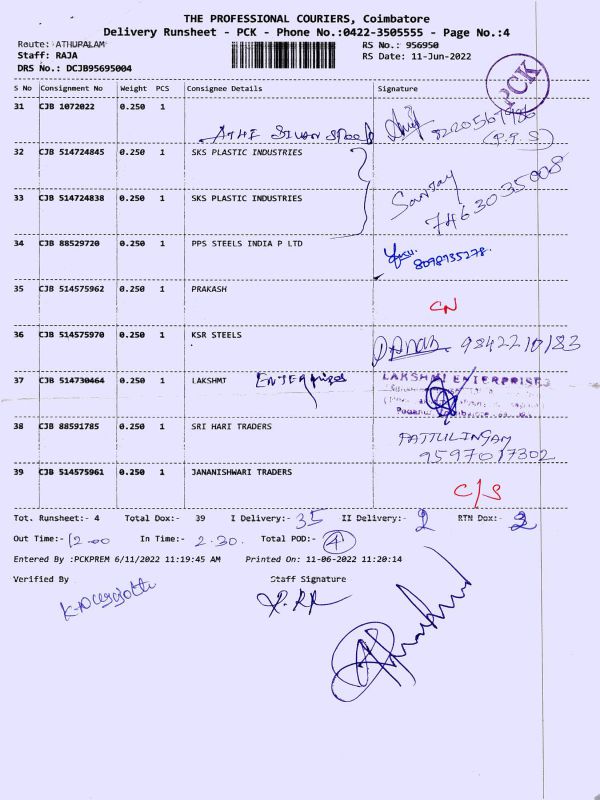 THE PROFESSIONAL COURIERS, Coimbatore
Delivery Runsheet - PCK - Phone No.:0422-3505555 - Page No.:4
Route: ATHUPALAM
Staff: RAJA
DRS No.: DCJB95695004
RS No.: 956950
RS Date: 11-Jun-2022
PCK
S No Consignment No Weight PCS Consignee Details Signature
31 CJB 1072022 0.250 1
32 CJB 514724845 0.250 1 SKS PLASTIC INDUSTRIES
33 CJB 514724838 0.250 1 SKS PLASTIC INDUSTRIES Sanjay 7463035008
34 CJB 88529720 0.250 1 PPS STEELS INDIA P LTD 8098935278
35 CJB 514575962 0.250 1 PRAKASH CN
36 CJB 514575970 0.250 1 KSR STEELS 9842210183
37 CJB 514730464 0.250 1 LAKSHMT ENTERprises LAKSHMI ENTERPRISES
38 CJB 88591785 0.250 1 SRI HARI TRADERS PATTULINGAM
9597017302
39 CJB 514575961 0.250 1 JANANISHWARI TRADERS C/S
Tot. Runsheet:- 4 Total Dox:- 39 I Delivery:- 35 II Delivery:- 2 RTN Dox:- 2
Out Time:- 12-00 In Time:- 2.30. Total POD:- 4
Entered By :PCKPREM 6/11/2022 11:19:45 AM Printed On: 11-06-2022 11:20:14
Verified By Staff Signature